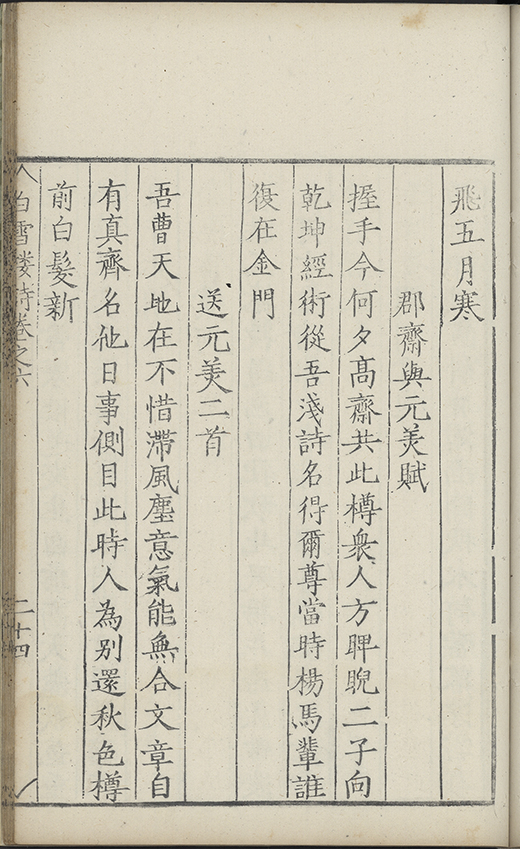 飛五月寒
郡齋與元美賦
握手今何夕高齋共此樽衆人方睥睨二子向
乾坤經術從吾淺詩名得爾尊當時楊馬輩誰
復在金門
送元美二首
吾曹天地在不惜滯風塵意氣能無合文章自
有真齊名他日事側目此時人為别還秋色樽
前白髮新
白雪樓詩卷之六
二十四